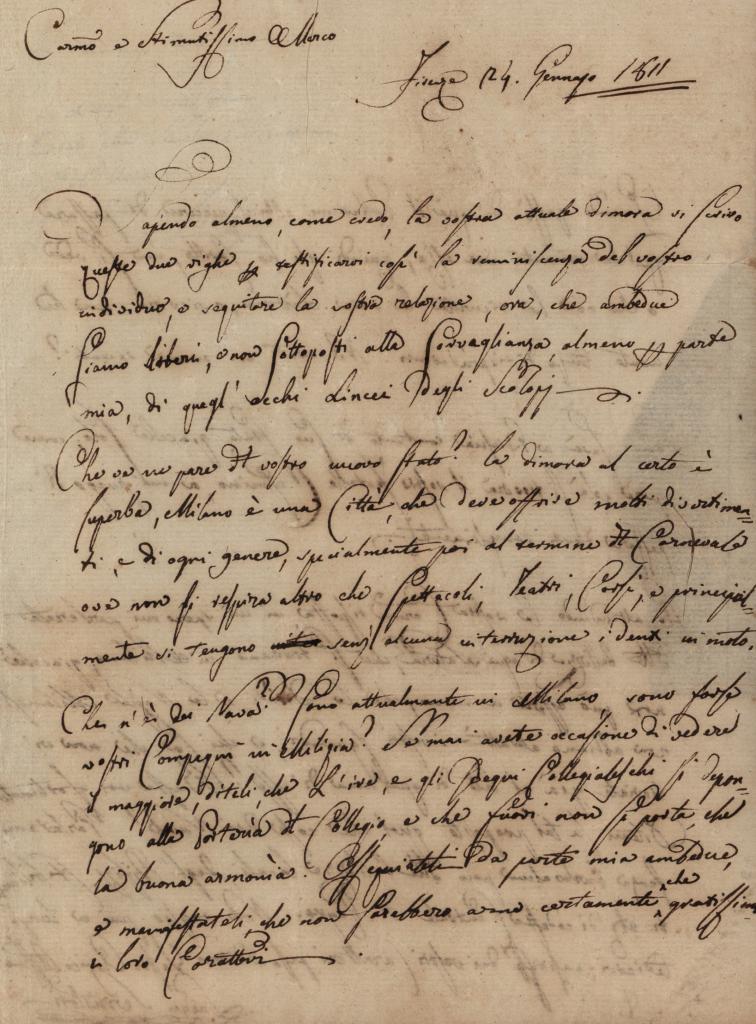 Carmo e Stimatissimo Amico
Firenze 24. Gennajo 1811
Sapendo almeno, come credo, la vostra attuale dimora vi scrivo
queste due righe p testificarvi così la reminiscenza del vostro
individuo, e seguitare la vostra relazione, ora, che ambedue
siamo liberi, e non sottoposti alla sorvaglianza, almeno p parte
mia, di quegl' occhi Lincei degli Scolopj.
Che ve ne pare dl vostro nuovo stato? la dimora al certo è
superba, Milano è una Città, che deve offrire molti divertimen-
ti, e di ogni genere, specialmente poi al termine dl Carnevale
ove non si respira altro che Spettacoli, Teatri, Corsi, e principal-
mente si tengono senz' alcuna interruzione i denti in moto.
Che n'è dei Nava? Sono attualmente in Milano, sono forse
vostri Compagni in Milizia? Se mai avete occasione di vedere
il maggiore, diteli, che L'ire, e gli Sdegni Collegialeschi si depon-
gono alla Porteria dl Collegio, e che fuori non si porta, che
la buona armonìa. Ossequiateli da parte mia ambedue,
e manifestateli, che non sarebbero a me certamente che gratissimi
i loro Caratteri.